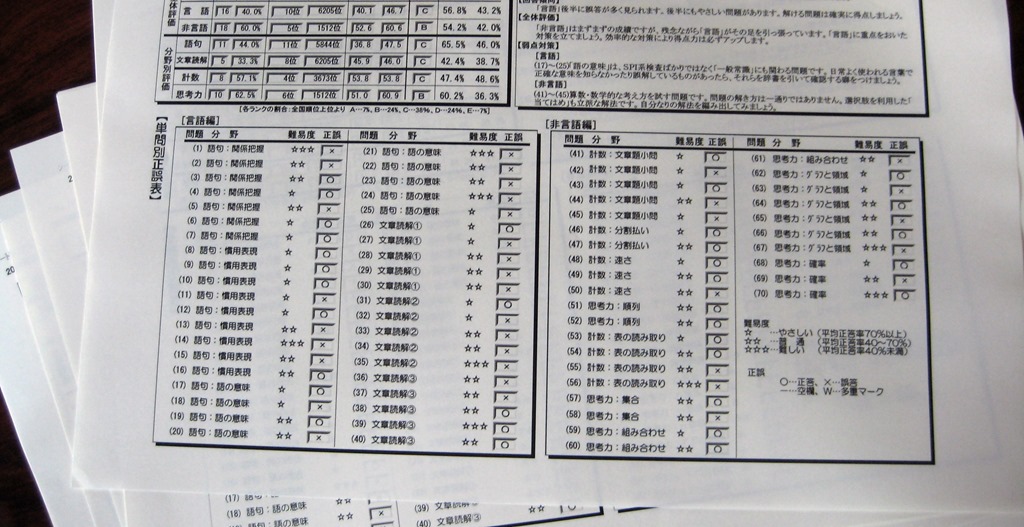 言語 16 40.0% 10位 6205位 40.1 46.7 C 56.8% 43.2%
非言語 18 60.0% 5位 1512位 52.6 60.6 B 54.2% 42.0%
語句 11 44.0% 11位 5844位 36.8 47.5 C 65.5% 46.0%
文章読解 5 33.3% 8位 6205位 45.9 46.0 C 42.4% 38.7%
計数 8 57.1% 4位 3673位 53.8 53.8 C 47.4% 48.6%
思考力 10 62.5% 6位 1512位 51.0 60.9 B 60.2% 36.3%
分野別評価
[各ランクの割合:全国順位上位より A…7%, B…24%, C…38%, D…24%, E…7%]
「言語」後半に誤答が多く見られます。後半にもやさしい問題があります。解ける問題は確実に得点しましょう。
【全体評価】
「非言語」はまずまずの成績ですが、残念ながら「言語」がその足を引っ張っています。「言語」に重点をおいた
対策を立てましょう。効率的な対策により得点力は必ずアップします。
【弱点対策】
[言語]
(17)~(25)「語の意味」は、SPI系検査ばかりではなく「一般常識」にも関わる問題です。日常よく使われる言葉で
正確な意味を知らなかったり誤解しているものがあったら、それらを辞書を引いて確認する癖をつけましょう。
[非言語]
(41)~(45)算数・数学的な考え方を試す問題です。問題の解き方は一通りではありません。選択肢を利用した「
当てはめ」も立派な解法です。自分なりの解法を編み出してみましょう。
【単問別正誤表】
[言語編]
問題 分 野 難易度 正誤
(1) 語句:関係把握 ☆☆☆ ×
(2) 語句:関係把握 ☆☆ ×
(3) 語句:関係把握 ☆☆ ○
(4) 語句:関係把握 ☆ ○
(5) 語句:関係把握 ☆☆ ×
(6) 語句:関係把握 ☆ ○
(7) 語句:関係把握 ☆ ○
(8) 語句:慣用表現 ☆ ○
(9) 語句:慣用表現 ☆ ○
(10) 語句:慣用表現 ☆ ○
(11) 語句:慣用表現 ☆ ×
(12) 語句:慣用表現 ☆ ○
(13) 語句:慣用表現 ☆☆ ×
(14) 語句:慣用表現 ☆☆☆ ×
(15) 語句:慣用表現 ☆☆ ×
(16) 語句:慣用表現 ☆☆ ○
(17) 語句:語の意味 ☆ ○
(18) 語句:語の意味 ☆ ×
(19) 語句:語の意味 ☆☆ ○
(20) 語句:語の意味 ☆☆ ×
問題 分 野 難易度 正誤
(21) 語句:語の意味 ☆☆☆ ×
(22) 語句:語の意味 ☆☆ ×
(23) 語句:語の意味 ☆☆ ×
(24) 語句:語の意味 ☆☆☆ ×
(25) 語句:語の意味 ☆ ×
(26) 文章読解① ☆ ○
(27) 文章読解① ☆ ×
(28) 文章読解① ☆☆ ×
(29) 文章読解① ☆☆ ×
(30) 文章読解① ☆☆ ×
(31) 文章読解② ☆ ○
(32) 文章読解② ☆ ×
(33) 文章読解② ☆☆ ×
(34) 文章読解② ☆☆ ×
(35) 文章読解② ☆☆☆ ×
(36) 文章読解③ ☆☆ ×
(37) 文章読解③ ☆☆ ×
(38) 文章読解③ ☆☆ ○
(39) 文章読解③ ☆☆☆ ○
(40) 文章読解③ ☆☆ ○
[非言語編]
問題 分 野 難易度 正誤
(41) 計数:文章題小問 ☆ ○
(42) 計数:文章題小問 ☆
(43) 計数:文章題小問 ☆
(44) 計数:文章題小問 ☆☆
(45) 計数:文章題小問 ☆☆
(46) 計数:分割払い ☆
(47) 計数:分割払い ☆☆
(48) 計数:速さ ☆
(49) 計数:速さ ☆☆
(50) 計数:速さ ☆☆
(51) 思考力:順列 ☆☆
(52) 思考力:順列 ☆☆
(53) 計数:表の読み取り ☆
(54) 計数:表の読み取り ☆☆
(55) 計数:表の読み取り ☆☆
(56) 計数:表の読み取り ☆☆☆
(57) 思考力:集合 ☆☆
(58) 思考力:集合 ☆☆
(59) 思考力:組み合わせ ☆ ○
(60) 思考力:組み合わせ ☆☆ ○
問題 分 野 難易度 正誤
(61) 思考力:組み合わせ ☆☆ ×
(62) 思考力:グラフと領域 ☆ ○
(63) 思考力:グラフと領域 ☆ ×
(64) 思考力:グラフと領域 ☆☆ ○
(65) 思考力:グラフと領域 ☆☆ ×
(66) 思考力:グラフと領域 ☆☆ ○
(67) 思考力:グラフと領域 ☆☆☆ ×
(68) 思考力:確率 ☆ ○
(69) 思考力:確率 ☆☆ ×
(70) 思考力:確率 ☆☆☆ ○
難易度
☆ …やさしい (平均正答率70%以上)
☆☆ …普 通 (平均正答率40~70%)
☆☆☆…難しい (平均正答率40%未満)
正誤
○…正答、×…誤答
-…空欄、W…多重マーク
(17) 語句:語の意味 ☆☆
(18) 語句:語の意味 ☆☆ ×
語句:語の意味 ☆☆ ×
(39) 文章読解③
(40) 文章読解③